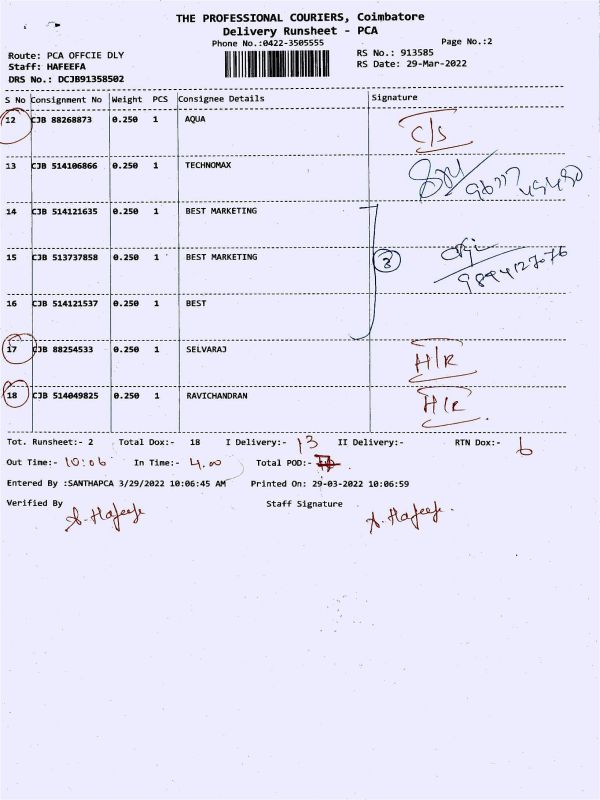 THE PROFESSIONAL COURIERS, Coimbatore
Delivery Runsheet - PCA
Phone No.:0422-3505555
Page No.:2
Route: PCA OFFCIE DLY
RS No.: 913585
Staff: HAFEEFA
RS Date: 29-Mar-2022
DRS No.: DCJB91358502
S No Consignment No Weight PCS Consignee Details Signature
12 CJB 88268873 0.250 1 AQUA C/S
13 CJB 514106866 0.250 1 TECHNOMAX
14 CJB 514121635 0.250 1 BEST MARKETING
15 CJB 513737858 0.250 1 BEST MARKETING 3
9894127076
16 CJB 514121537 0.250 1 BEST
17 CJB 88254533 0.250 1 SELVARAJ H/R
18 CJB 514049825 0.250 1 RAVICHANDRAN H/R
Tot. Runsheet:- 2 Total Dox:- 18 I Delivery:- 13 II Delivery:- RTN Dox:- 6
Out Time:- 10:06 In Time:- 4.00 Total POD:-
Entered By :SANTHAPCA 3/29/2022 10:06:45 AM Printed On: 29-03-2022 10:06:59
Verified By Staff Signature
A. Hafeefa A. Hafeefa